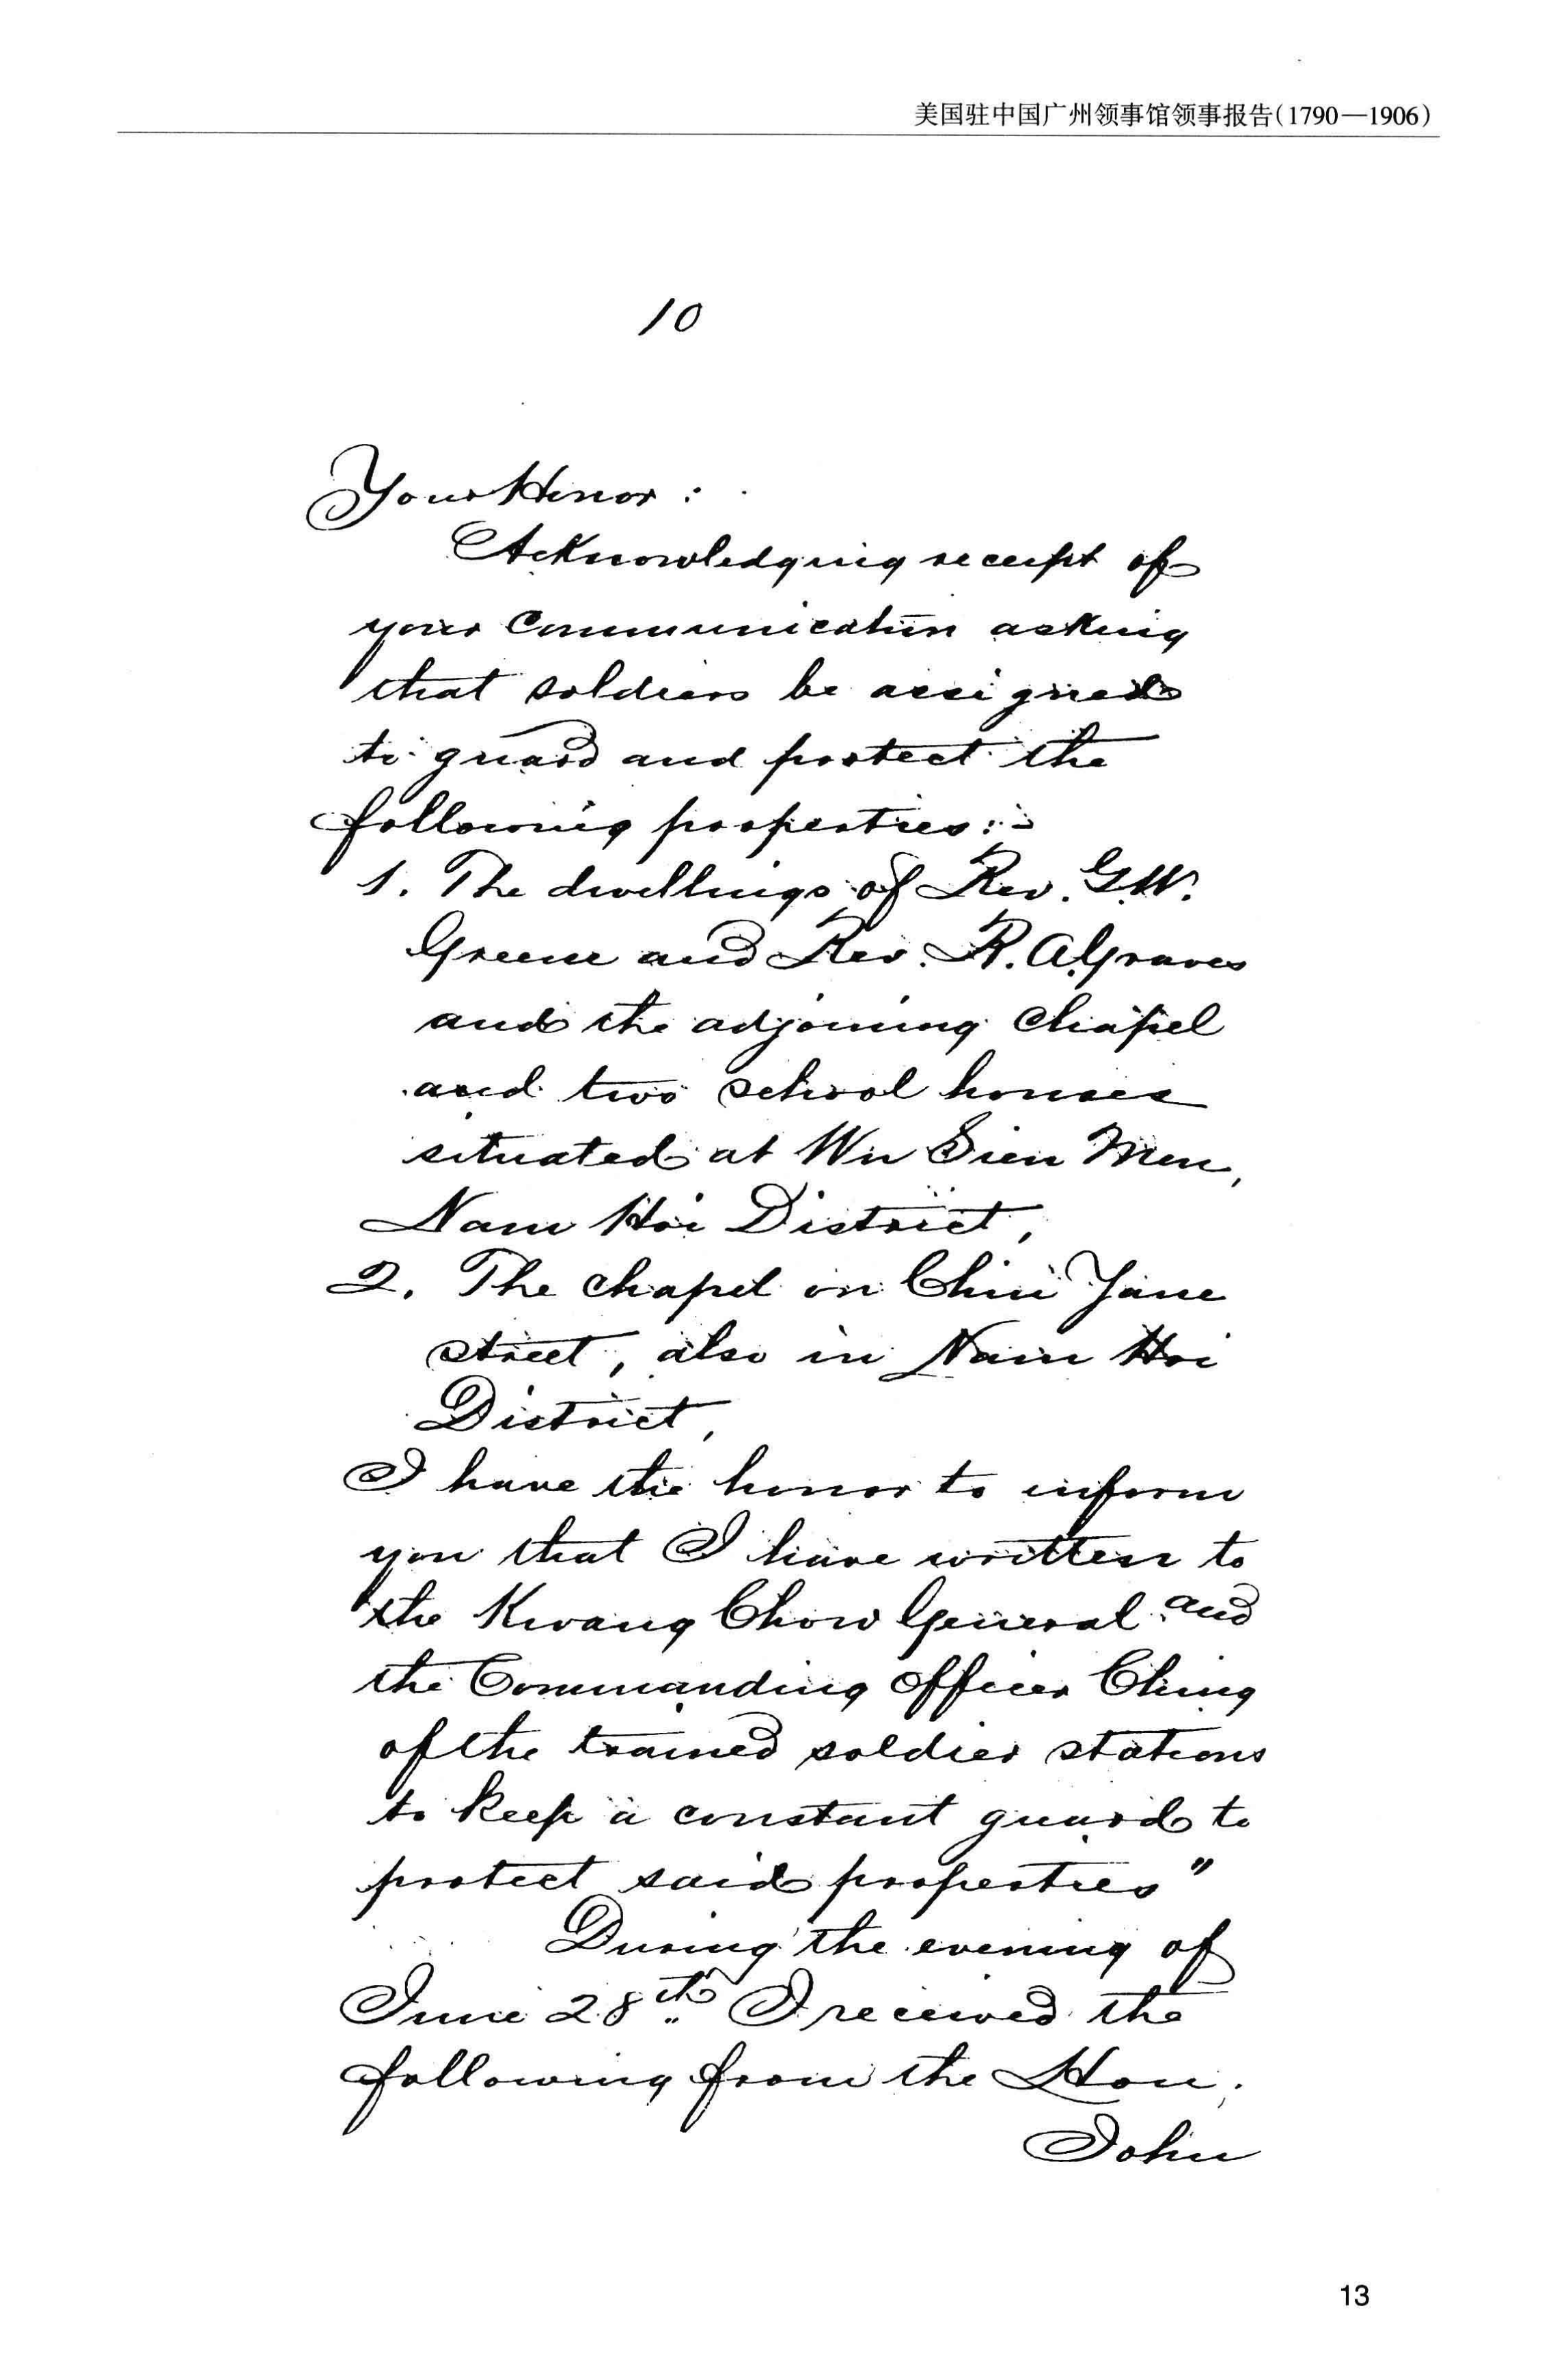 美国驻中国广州领事馆领事报告(1790—1906)
10
Your Honor :
Acknowledging receipt of
your communication asking
that soldiers be assigned
to guard and protect the
following properties:-
1. The dwellings of Rev. G.W.
Greene and Rev. R. A. Graves
and the adjoining Chapel
and two school houses
situated at Wu Sien Men,
Nam Hoi District,
2. The chapel on
street, also in Nam Hoi
District,
I have the honor to inform
you that I have written to
the Kwang Chow General and
the Commanding officer Ching
of the trained soldier stations
to keep a constant guard to
protect said properties"
During the evening of
June 28th I received the
following from the Hon.
John
13